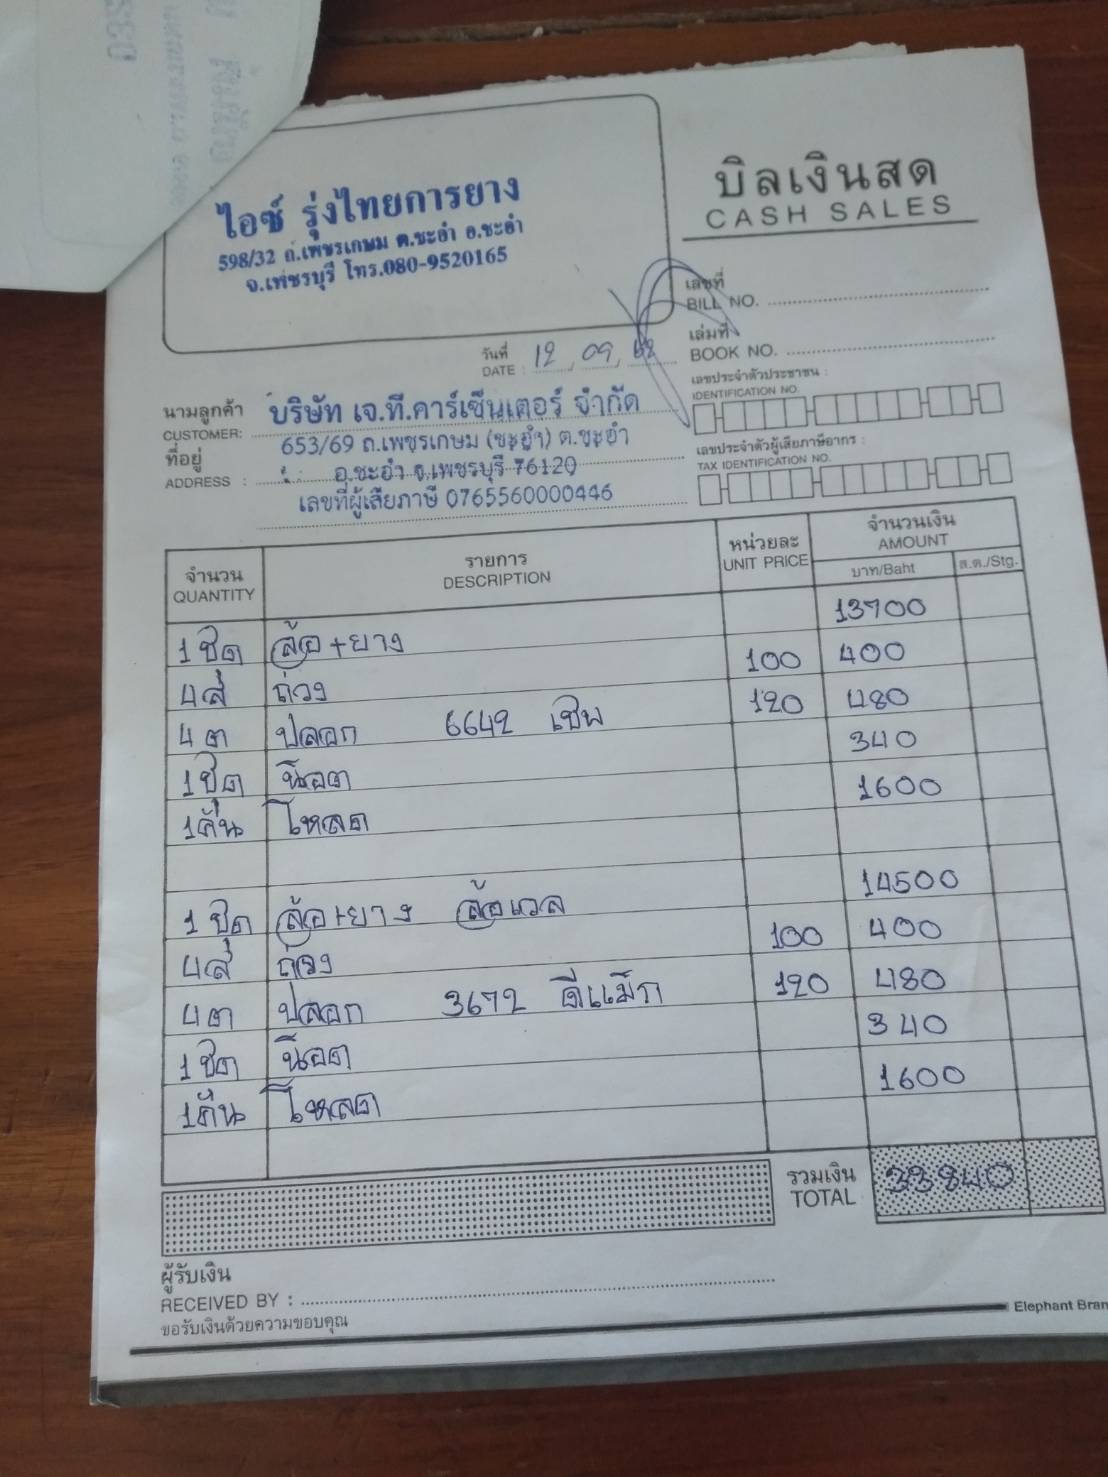 ไอซ์ รุ่งไทยการยาง
598/32 ถ.เพชรเกษม ต.ชะอำ อ.ชะอำ
จ.เพชรบุรี โทร.080-9520165
บิลเงินสด
CASH SALES
เลขที่
BILL NO.
เล่มที่
BOOK NO.
วันที่
DATE : 12 09
เลขประจำตัวประชาชน :
IDENTIFICATION NO.
นามลูกค้า บริษัท เจ.ที.คาร์เซ็นเตอร์ จำกัด
CUSTOMER:
653/69 ถ.เพชรเกษม (ชะอำ) ต.ชะอำ
ที่อยู่
ADDRESS : อ.ชะอำ จ.เพชรบุรี 76120
เลขที่ผู้เสียภาษี 0765560000446
เลขประจำตัวผู้เสียภาษีอากร :
TAX IDENTIFICATION NO.
จำนวน รายการ หน่วยละ จำนวนเงิน
QUANTITY DESCRIPTION UNIT PRICE AMOUNT
บาท/Baht ส.ต./Stg.
1 ชุด ล้อ+ยาง 13700
4 ล้อ ถ่วง 100 400
4 ต ปลอก 6642 เชฟ 120 480
1 ชุด น๊อต 340
1 คัน โหลด 1600
1 ชุด ล้อ+ยาง ล้อเวล 14500
4 ล้อ ถ่วง 100 400
4 ต ปลอก 3672 ดีแม็ก 120 480
1 ชุด น๊อต 340
1 คัน โหลด 1600
รวมเงิน
TOTAL 33840
ผู้รับเงิน
RECEIVED BY :
ขอรับเงินด้วยความขอบคุณ
Elephant Bran